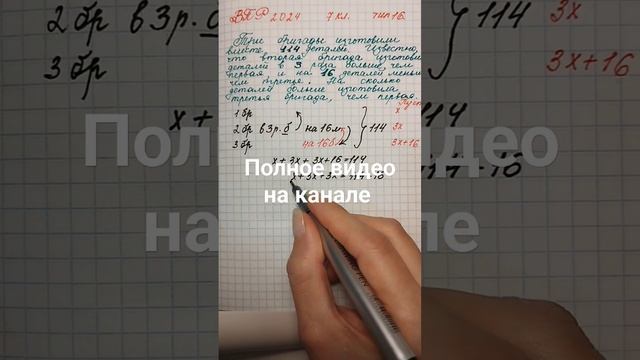 ВПР 2024 7 кл. тип 16.
Три бригады изготовили
вместе 114 деталей. Известно,
что вторая бригада изготовила
деталей в 3 раза больше, чем
первая и на 16 деталей меньше
чем третья. На сколько
деталей больше изготовила
третья бригада, чем первая.
1 бр
2 бр в 3 р. б на 16 м
3 бр на 16 б
114
Пусть
x
3x
3x+16
x + 3x + 3x + 16 = 114
x + 3x + 3x = 114 - 16
Полное видео
на канале
2 бр в 3 р. б
3 бр
x +
114
3x
3x+16